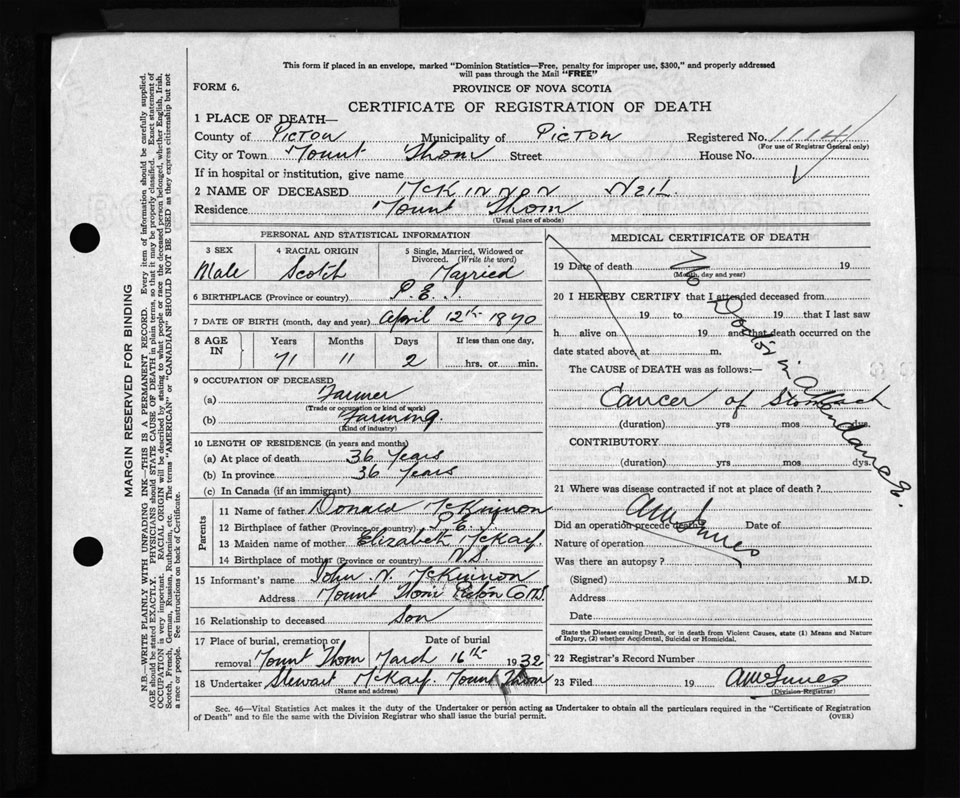 This form if placed in an envelope, marked "Dominion Statistics—Free, penalty for improper use, $300," and properly addressed
will pass through the Mail "FREE"
FORM 6.
PROVINCE OF NOVA SCOTIA
CERTIFICATE OF REGISTRATION OF DEATH
1 PLACE OF DEATH—
County of Pictou Municipality of Pictou Registered No. 1114
(For use of Registrar General only)
City or Town Mount Thom Street House No.
If in hospital or institution, give name
2 NAME OF DECEASED McKinnon Neil
Residence Mount Thom
(Usual place of abode)
PERSONAL AND STATISTICAL INFORMATION
3 SEX 4 RACIAL ORIGIN 5 Single, Married, Widowed or
Divorced. (Write the word)
Male Scotch Married
6 BIRTHPLACE (Province or country) P.E.I.
7 DATE OF BIRTH (month, day and year) April 12th 1870
8 AGE IN Years Months Days If less than one day,
71 11 2 hrs. or min.
9 OCCUPATION OF DECEASED
(a) Farmer
(Trade or occupation or kind of work)
(b) Farming.
(Kind of industry)
10 LENGTH OF RESIDENCE (in years and months)
(a) At place of death 36 Years
(b) In province 36 Years
(c) In Canada (if an immigrant)
Parents
11 Name of father Donald McKinnon
12 Birthplace of father (Province or country) P.E.I
13 Maiden name of mother Elizabeth McKay.
14 Birthplace of mother (Province or country) N.S
15 Informant's name John N. McKinnon
Address Mount Thom Pictou Co N.S.
16 Relationship to deceased Son
17 Place of burial, cremation or Date of burial
removal Mount Thom March 16th 1932
18 Undertaker Stewart McKay. Mount Thom
(Name and address)
MEDICAL CERTIFICATE OF DEATH
19 Date of death 19
(Month, day and year)
20 I HEREBY CERTIFY that I attended deceased from
19 to 19 that I last saw
h alive on 19 and that death occurred on the
date stated above, at m.
The CAUSE of DEATH was as follows:—
Cancer of Stomach
(duration) yrs mos dys.
CONTRIBUTORY
(duration) yrs mos dys.
No Doctor in attendance
21 Where was disease contracted if not at place of death?
Did an operation precede death? Date of
Nature of operation
Was there an autopsy?
(Signed) M.D.
Address
Date
State the Disease causing Death, or in death from Violent Causes, state (1) Means and Nature
of Injury, (2) whether Accidental, Suicidal or Homicidal.
22 Registrar's Record Number
23 Filed 19
(Division Registrar)
Sec. 46—Vital Statistics Act makes it the duty of the Undertaker or person acting as Undertaker to obtain all the particulars required in the "Certificate of Registration
of Death" and to file the same with the Division Registrar who shall issue the burial permit.
(OVER)
MARGIN RESERVED FOR BINDING
N.B.—WRITE PLAINLY WITH UNFADING INK—THIS IS A PERMANENT RECORD. Every item of information should be carefully supplied.
AGE should be stated EXACTLY. PHYSICIANS should STATE CAUSE OF DEATH in plain terms, so that it may be properly classified. Exact statement of
OCCUPATION is very important. RACIAL ORIGIN will be described by stating to what people or race the deceased person belonged, whether English, Irish,
Scotch, French, German, Russian, Ruthenian, etc. The terms "AMERICAN" or "CANADIAN" SHOULD NOT BE USED as they express citizenship but not
a race or people. See instructions on back of Certificate.